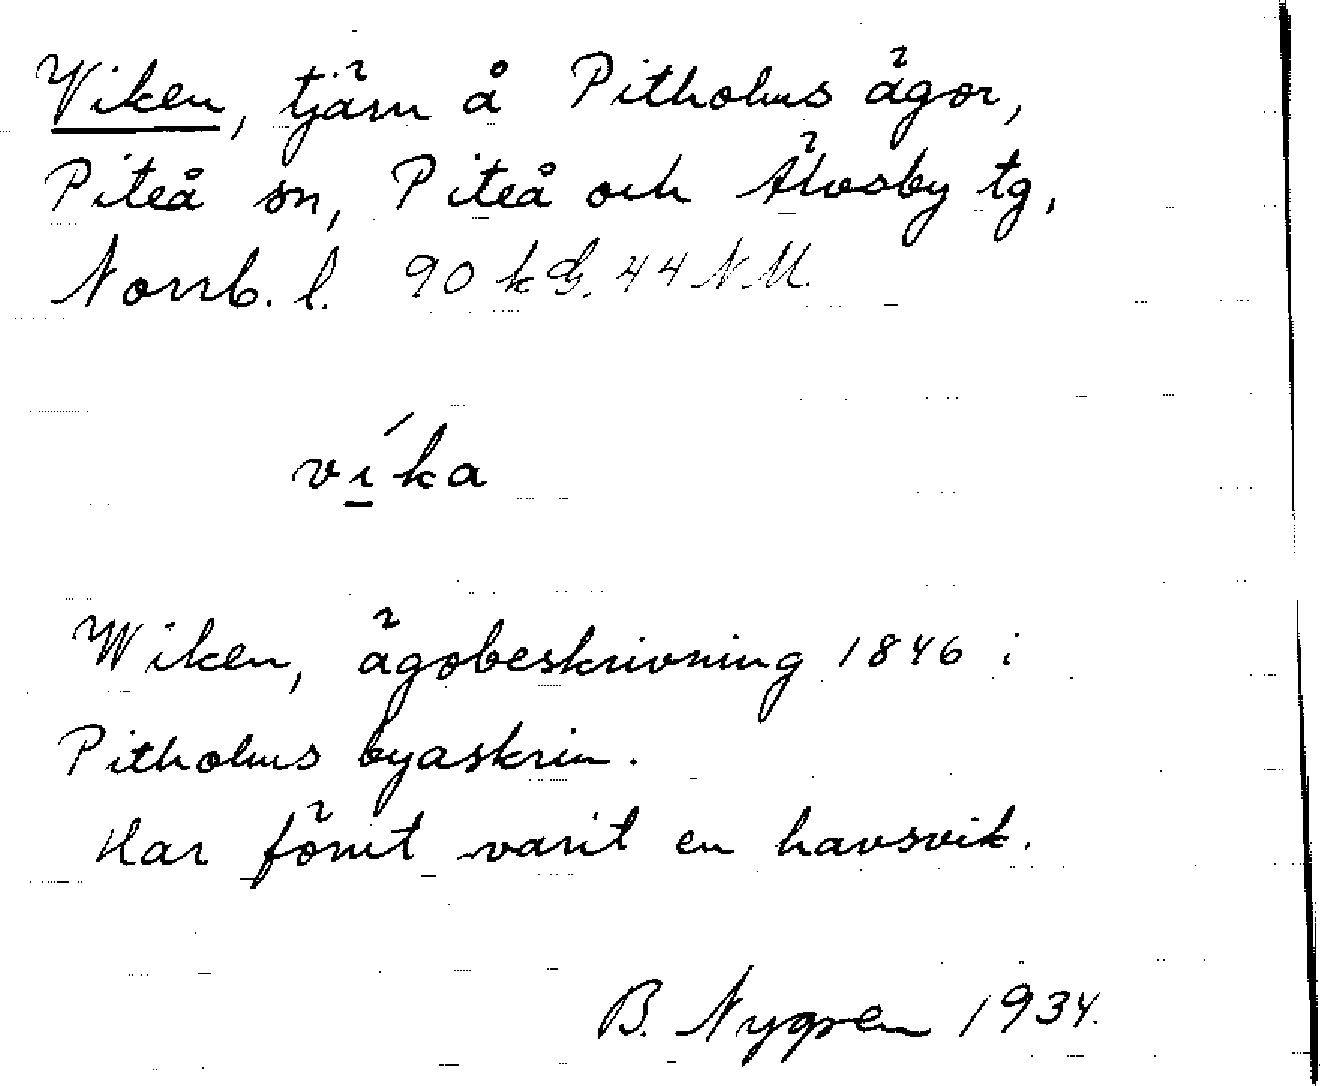 Viken, tjärn å Pitholms ägor,
Piteå sn, Piteå och Älvsby tg,
Norrb. l. 90 k G. 44 N.M.
víka
Wiken, ägobeskrivning 1846 i
Pitholms byaskrin.
Har förrit varit en havsvik.
B. Nygren 1934.